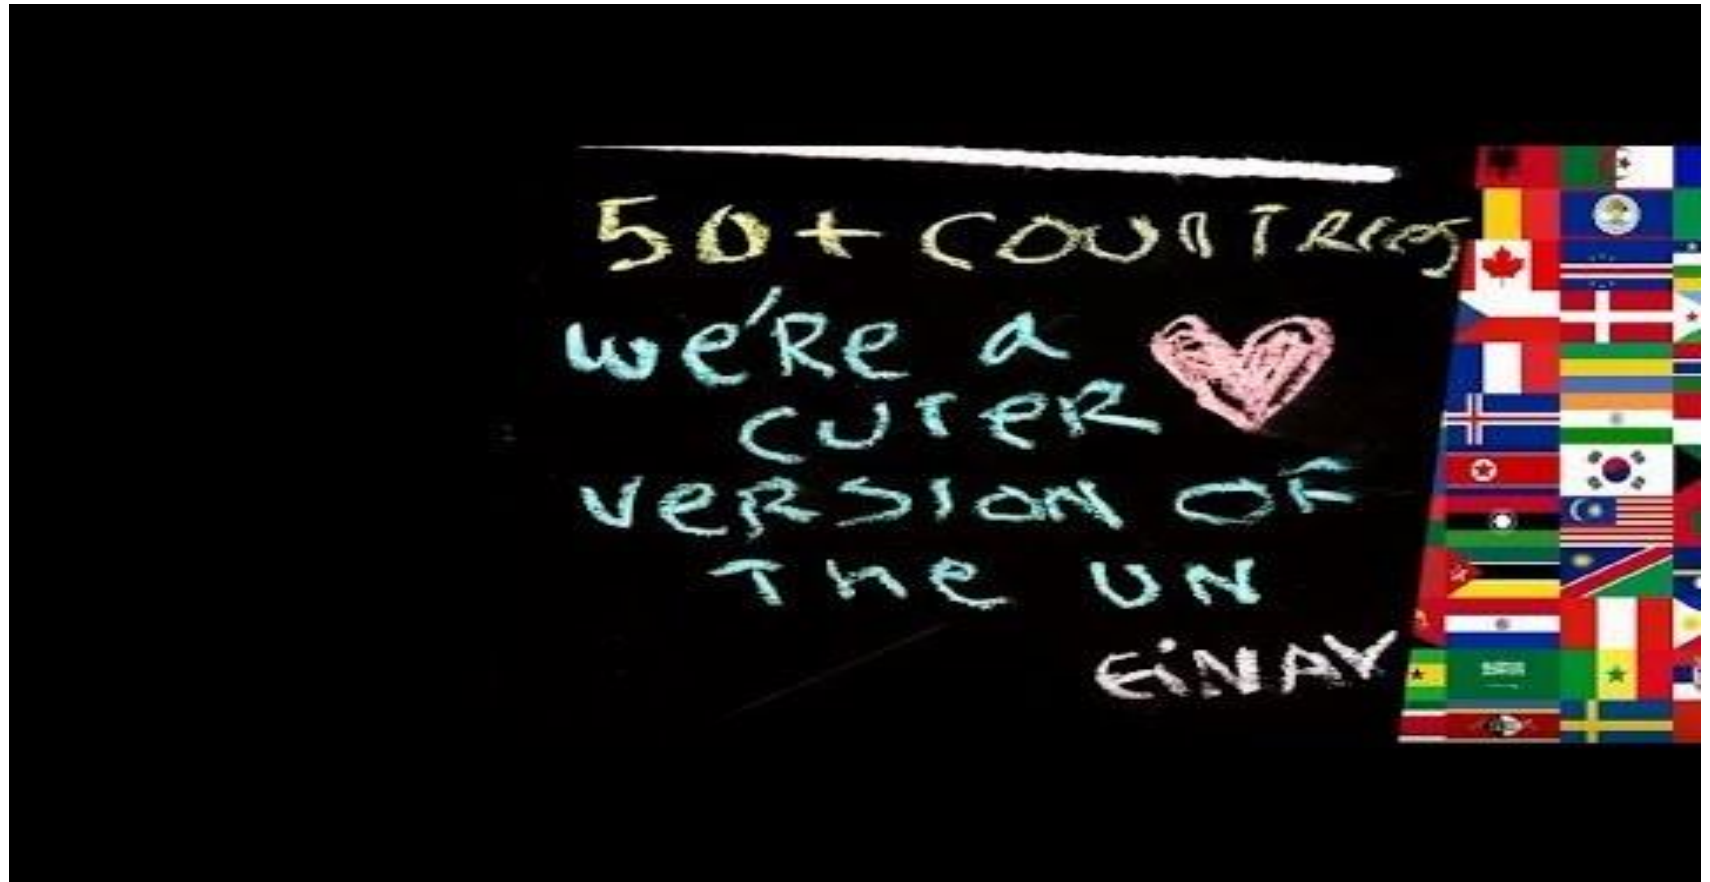 50+ COUNTRIES
We'Re a
CUTER
VERSION OF
The UN
EiNAV